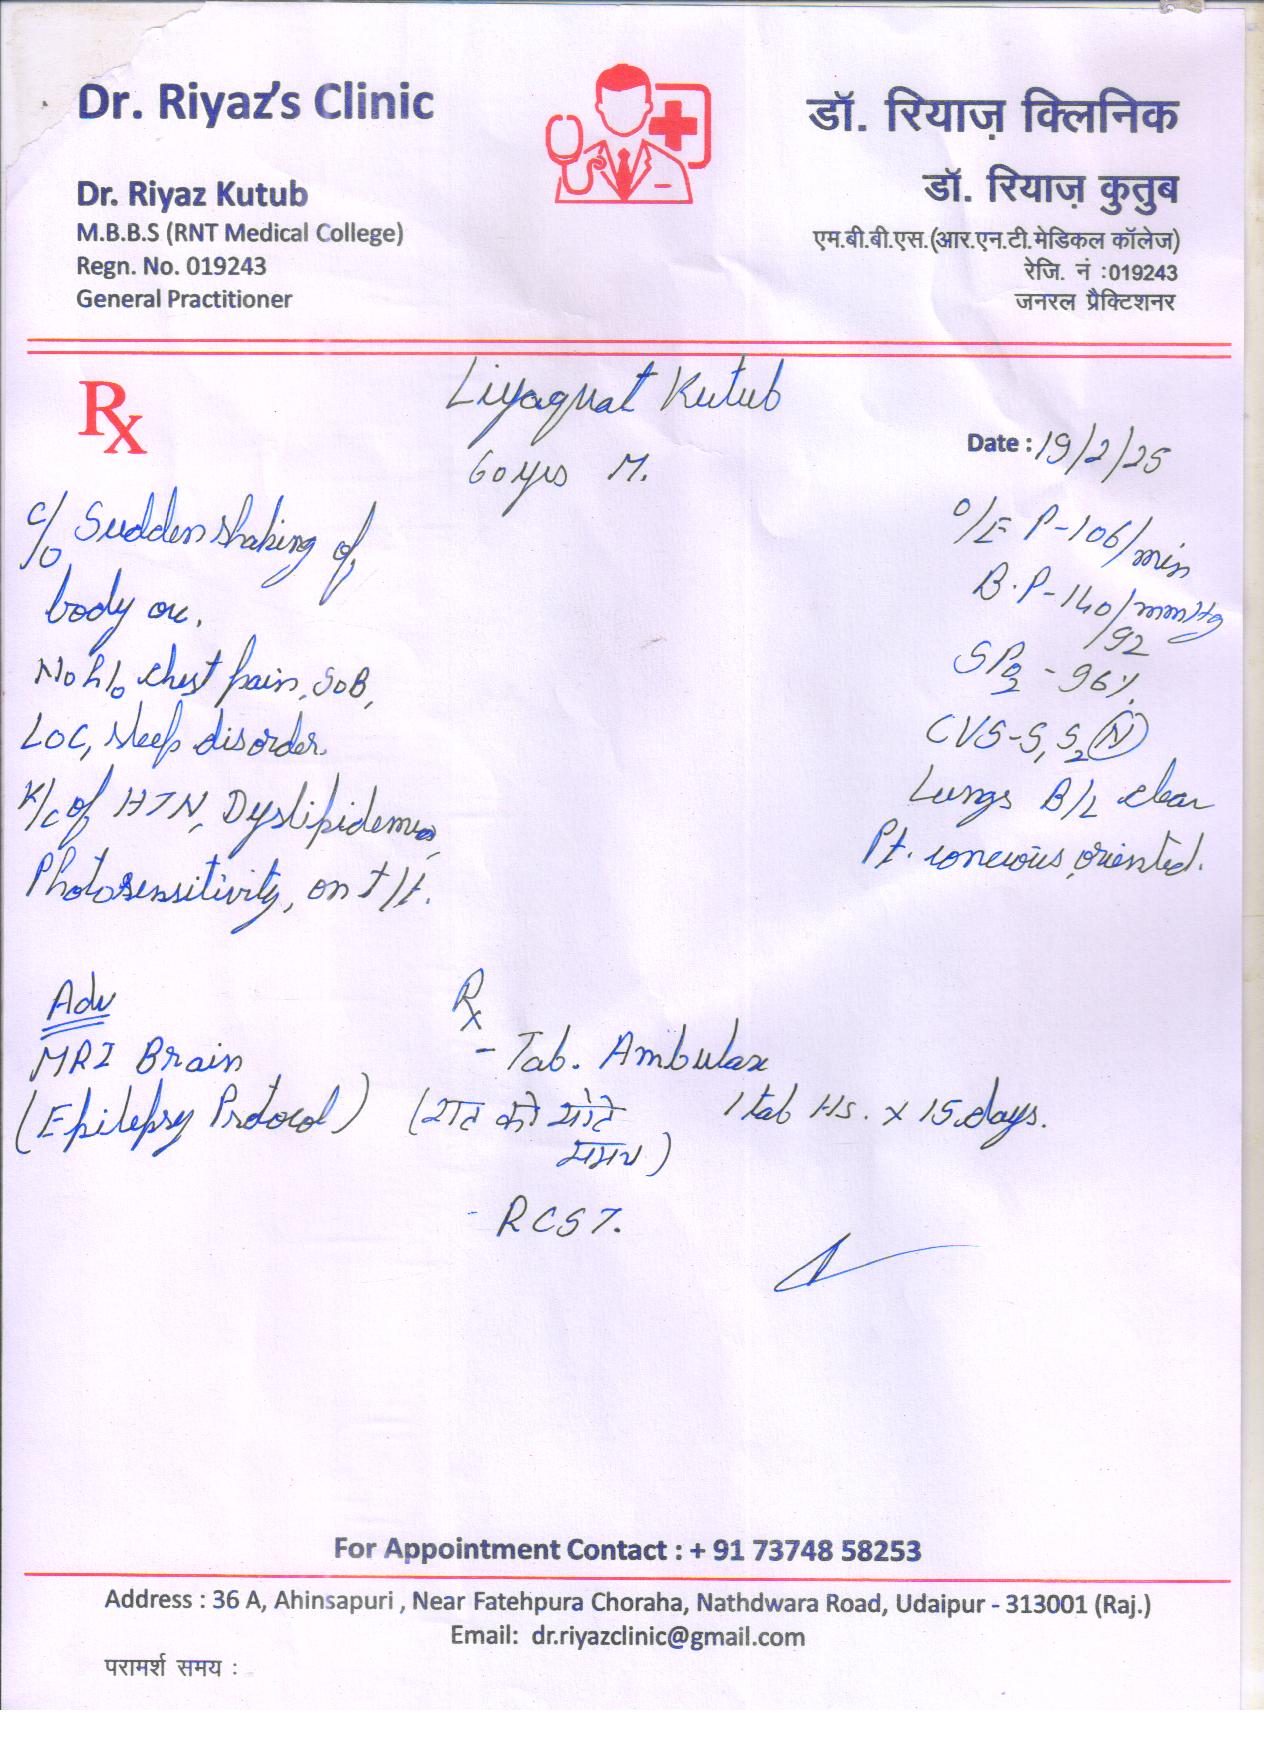 Dr. Riyaz's Clinic
Dr. Riyaz Kutub
M.B.B.S (RNT Medical College)
Regn. No. 019243
General Practitioner
डॉ. रियाज़ क्लिनिक
डॉ. रियाज़ कुतुब
एम.बी.बी.एस.(आर.एन.टी.मेडिकल कॉलेज)
रेजि. नं :019243
जनरल प्रैक्टिशनर
Rx
Liyaquat Kutub
60 yrs M.
Date : 19/2/25
c/o Sudden shaking of
body
No h/o chest pain, SOB,
LOC, sleep disorder.
K/c of HTN, Dyslipidemia,
Photosensitivity, on t/t.
O/E P-106/min
B.P-140/92 mmHg
SPO2 - 96%
CVS-S1 S2 (N)
Lungs B/L clear
Pt. concious, oriented.
Adv
MRI Brain
(Epilepsy Protocol)
Rx
- Tab. Ambulax
1 tab Hs. x 15 days.
(रात को सोते
समय)
- RCST.
For Appointment Contact : + 91 73748 58253
Address : 36 A, Ahinsapuri , Near Fatehpura Choraha, Nathdwara Road, Udaipur - 313001 (Raj.)
Email: dr.riyazclinic@gmail.com
परामर्श समय :